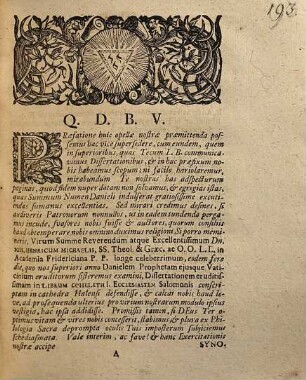 193.
Q. D. B. V.
PRæfatione huic opellæ nostræ præmittenda pos-
semus hac vice supersedere, cum eundem, quem
in superioribus, quas Tecum L. B. communica-
vimus Dissertationibus, & in hac præfixum no-
bis habeamus scopum; ni facile hariolaremur,
mirabundum Te nostras has adspecturum
paginas, quod fidem nuper datam non solvamus, & egregias istas,
quas Summum Numen Danieli indulserat gratiosissime excuti-
endi sumamus excellentias. Sed mirari credimus desines, si
audiveris Patronorum nonnullos, ut in eadem tundenda perga-
mus incude, suasores nobis fuisse & auctores, quorum consiliis
haud obtemperare nobis omnino duximus religioni. Si porro memini-
neris, Virum Summe Reverendum atque Excellentissimum Dn.
JOH. HENRICUM MICHAELIS, SS. Theol. & Græc. ac O. O. L. L. in
Academia Fridericiana P. P. longe celeberrimum, eadem fera
die, qua nos superiori anno Danielem Prophetam ejusque Vati-
cinium eruditorum differemus examini, Dissertationem eruditis-
simam in LIBRUM COHELETH s. ECCLESIASTEN Salomonis conscri-
ptam in cathedra Halensi defendisse, & calcar nobis haud le-
ve, ad prosequenda ulterius pro virium nostrarum modulo ipsius
vestigia, hac ipsa addidisse. Promissis tamen, si DEus Ter O-
ptimus vitam & vires nobis concesserit, stabimus, & plura ex Phi-
lologia Sacra deprompta oculis Tuis imposterum subjiciemus
schediasmata. Vale interim, ac fave! & hanc Exercitationis
nostræ accipe
A
SYNO-